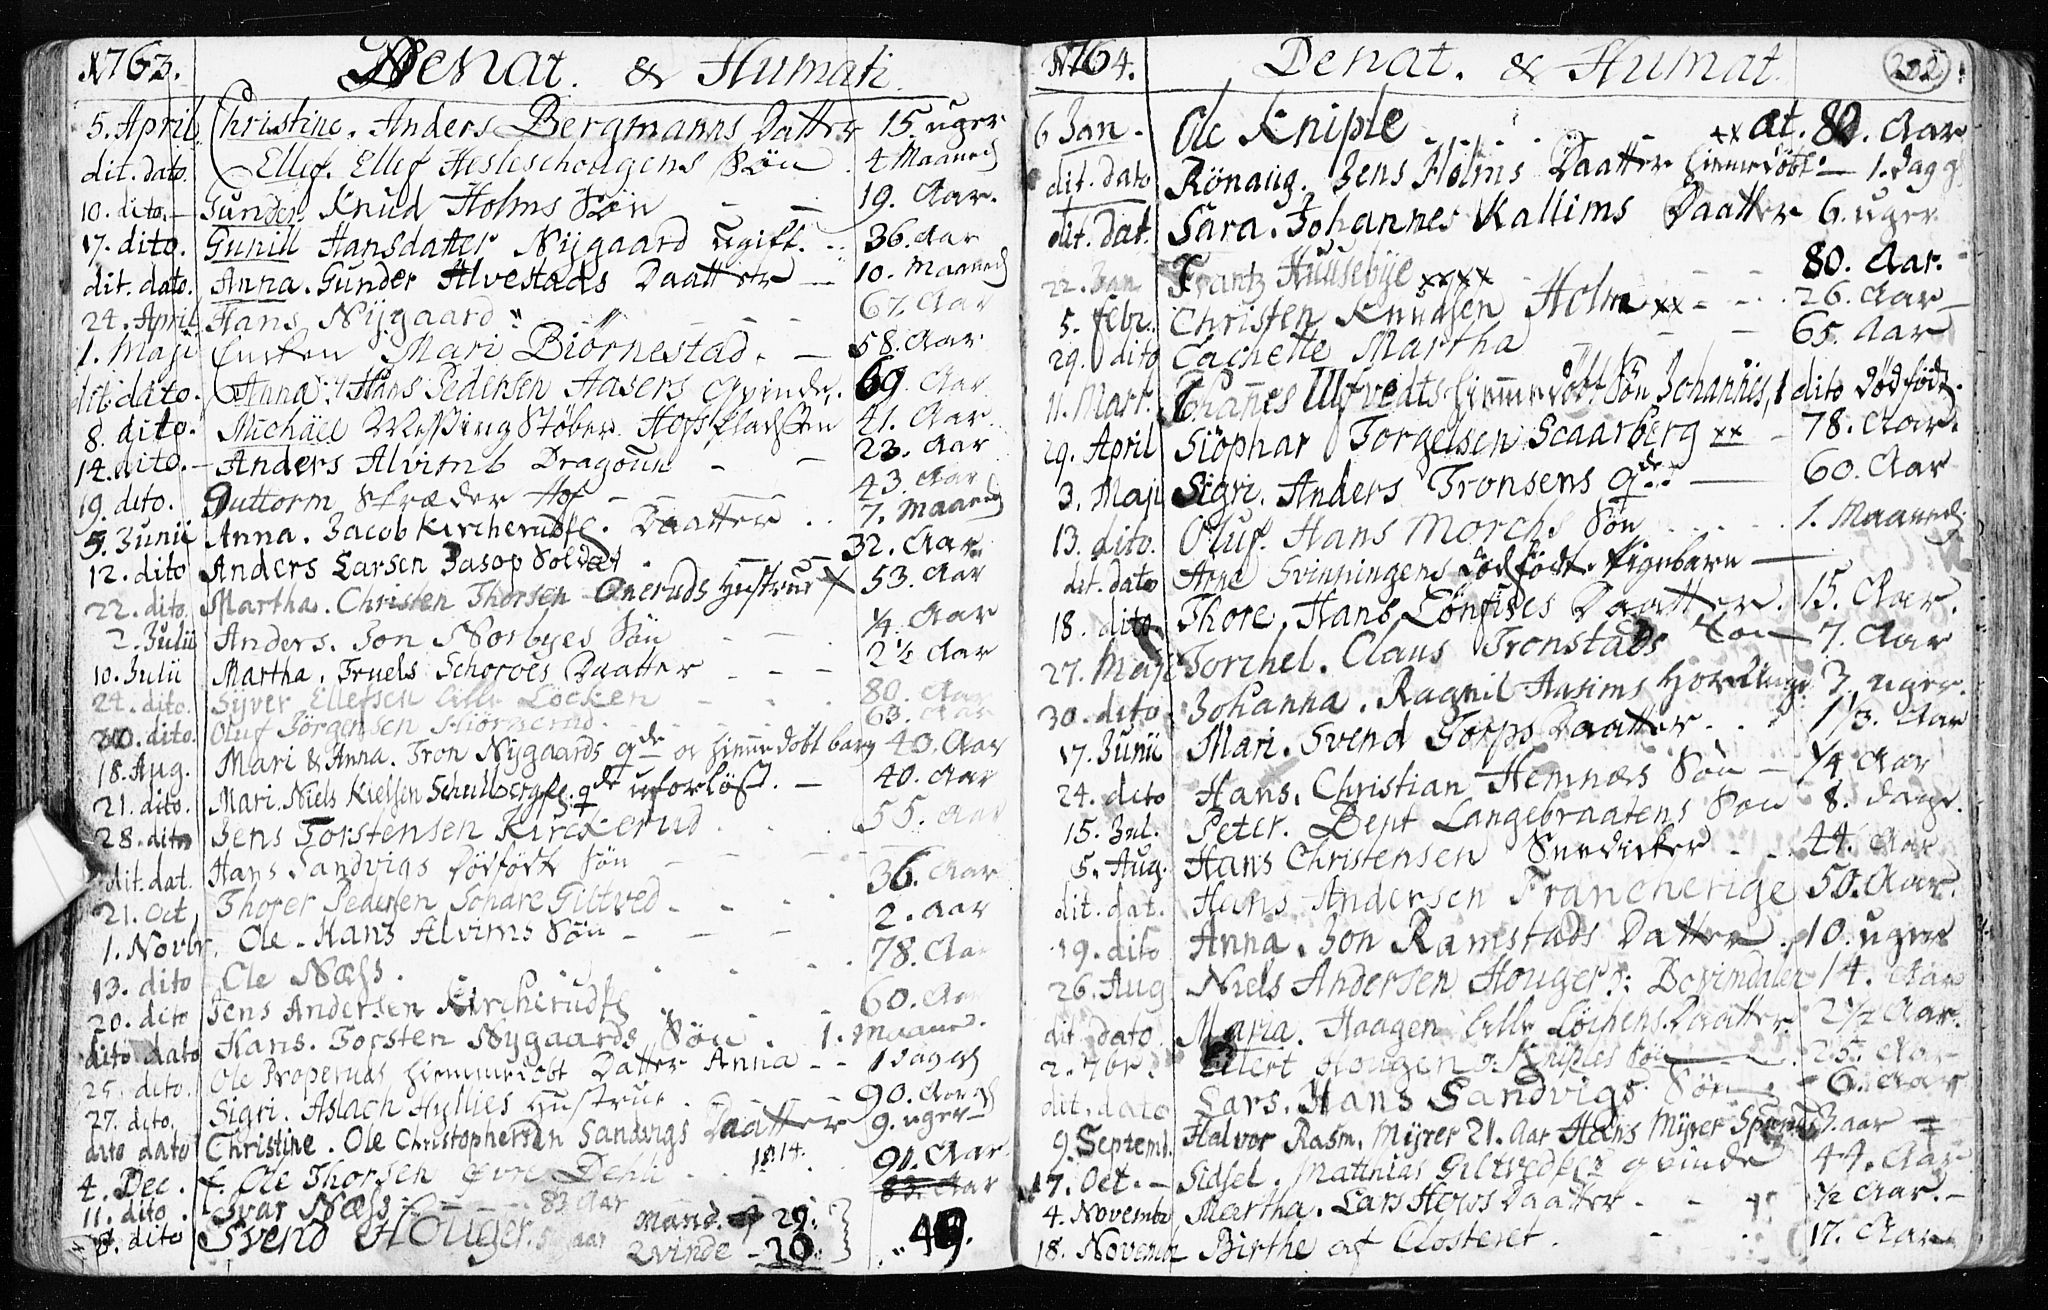 1763. Denat. & Humati.
5. April. Christine. Anders Bergmanns Datter 15. uger
dit. dato. Ellef. Ellef Hesleschougens Søn 4 Maaned
10. dito. Gunder. Knud Holms Søn 19. Aar.
17. dito. Gunill Hansdatter Nijgaard ugift. 36. Aar
dit. dato. Anna. Gunder Alvestads Daatter 10. Maaned
24. April Hans Nijgaard 67. Aar
1. Maji Enken Mari Biørnestad. 58. Aar
dit. dato. Anna. Hans Pedersen Aasers Qvinde. 69. Aar
8. dito. Michäel Messing Støber Hofs 41. Aar.
14. dito. Anders Alvims Dragoun 23. Aar
19. dito. Guttorm Skræder Hof 43. Aar
5. Junii Anna. Jacob Kircheruds Daatter 7. Maaned
12. dito Anders Larsen Jasop Soldat 32. Aar
22. dito. Martha. Christen Thorsen Oneruds Hustrue X 53. Aar
2. Julii Anders. Jon Norbyes Søn 1/4. Aar
10. Julii Martha. Truels Schorves Daatter 2 1/2 Aar
24. dito. Syver Ellefsen lille Løcken 80. Aar
dito. Oluf Jörgensen 63. Aar
18. Aug. Mari & Anna. Tron Nijgaards qde og hiemmedöbt barn 40. Aar
21. dito. Mari. Niels Kielsen qde uforløst. 40. Aar
28. dito Jens Torstensen Kirckerud 55. Aar
dit. dat. Hans Sandvigs Dödfödt Søn
21. Oct Thoger Pedersen Giltved 36. Aar
1. Novbr. Ole. Hans Alvims Søn 2. Aar
13. dito Ole Næss. 78. Aar
20. dito Jens Andersen Kircherud 60. Aar
dito dato Hans. Torsten Nygaards Søn. 1. Maaned.
25. dito. Ole Properuds hiemmedobt Datter Anna 1 Dag
27. dito. Sigri. Aslach Hyllies Hustrue. 90. Aar
dito dato Christine. Ole Christophersen Sandvigs Daatter 9. uger
4. Dec. Ole Thorsen Øvre Dehli 91. Aar.
11. dito. Ivar Næss 83 Aar 83. Aar
8. dito Svend Houger. Mand. 29.
Qvinde 20. 49.
1764. Denat. & Humat. 202
6 Jan. Ole Kniple xx æt. 80. Aar
dit. dato Rönaug. Jens Holms Daatter hiemmedöbt 1. Dag
dit. dat. Sara. Johannes Kallims Daatter 6. uger
22. Jan Frantz Huusebye xxxx 80. Aar.
5. febr. Christen Knudsen Holm xx 26. Aar
29. dito Martha 65. Aar
11. Mart. Ulfvedts hiemmedöbt Søn Johannes, 1 dito Dödföd.
29. April Siöphar Torgelsen Scaarberg xx 78. Aar.
3. Maji Sigri. Anders Tronsens qde 60. Aar
13. dito. Oluf. Hans Morchs Søn 1. Maaned
dit. dato Anna Svinningens Dödfödt Pigebarn
18. dito Thore. Hans Daatter. 15. Aar.
27. Maji Torchel. Claus Tronstads Søn 7. Aar
30. dito Johanna. Ragnil Aasims 3. uger.
17. Junii Mari. Svend Torps Daatter 1/3. Aar
24. dito Hans. Christian Hemnæs Søn 1/4 Aar
15. Jul. Peter. Bent Langebraatens Søn 8. Dage.
5. Aug. Hans Christensen Snedicker 44. Aar
dit. dat. Hans Andersen Francherige 50. Aar.
19. dito Anna. Jon Ramstads Datter. 10. uger
26. Aug Niels Andersen Houger 14. Aar
dit. dato Maria. Haagen lille Löchens Daatter 2 1/2 Aar.
2. 7br. Ellert Hougen Kniples Søn 25. Aar
dit. dato Lars. Hans Sandvigs Søn 6. Aar
9. Septemb. Halvor Rasm. Mijrer 21. Aar Hans Mijrer 3. aar
17. Oct. Sidsel. Matthias Giltved qvinde 44. Aar
4. Novembr Martha. Lars Hovs Daatter 1/2 Aar.
18. Novemb Birthe af Closteret. 17. Aar